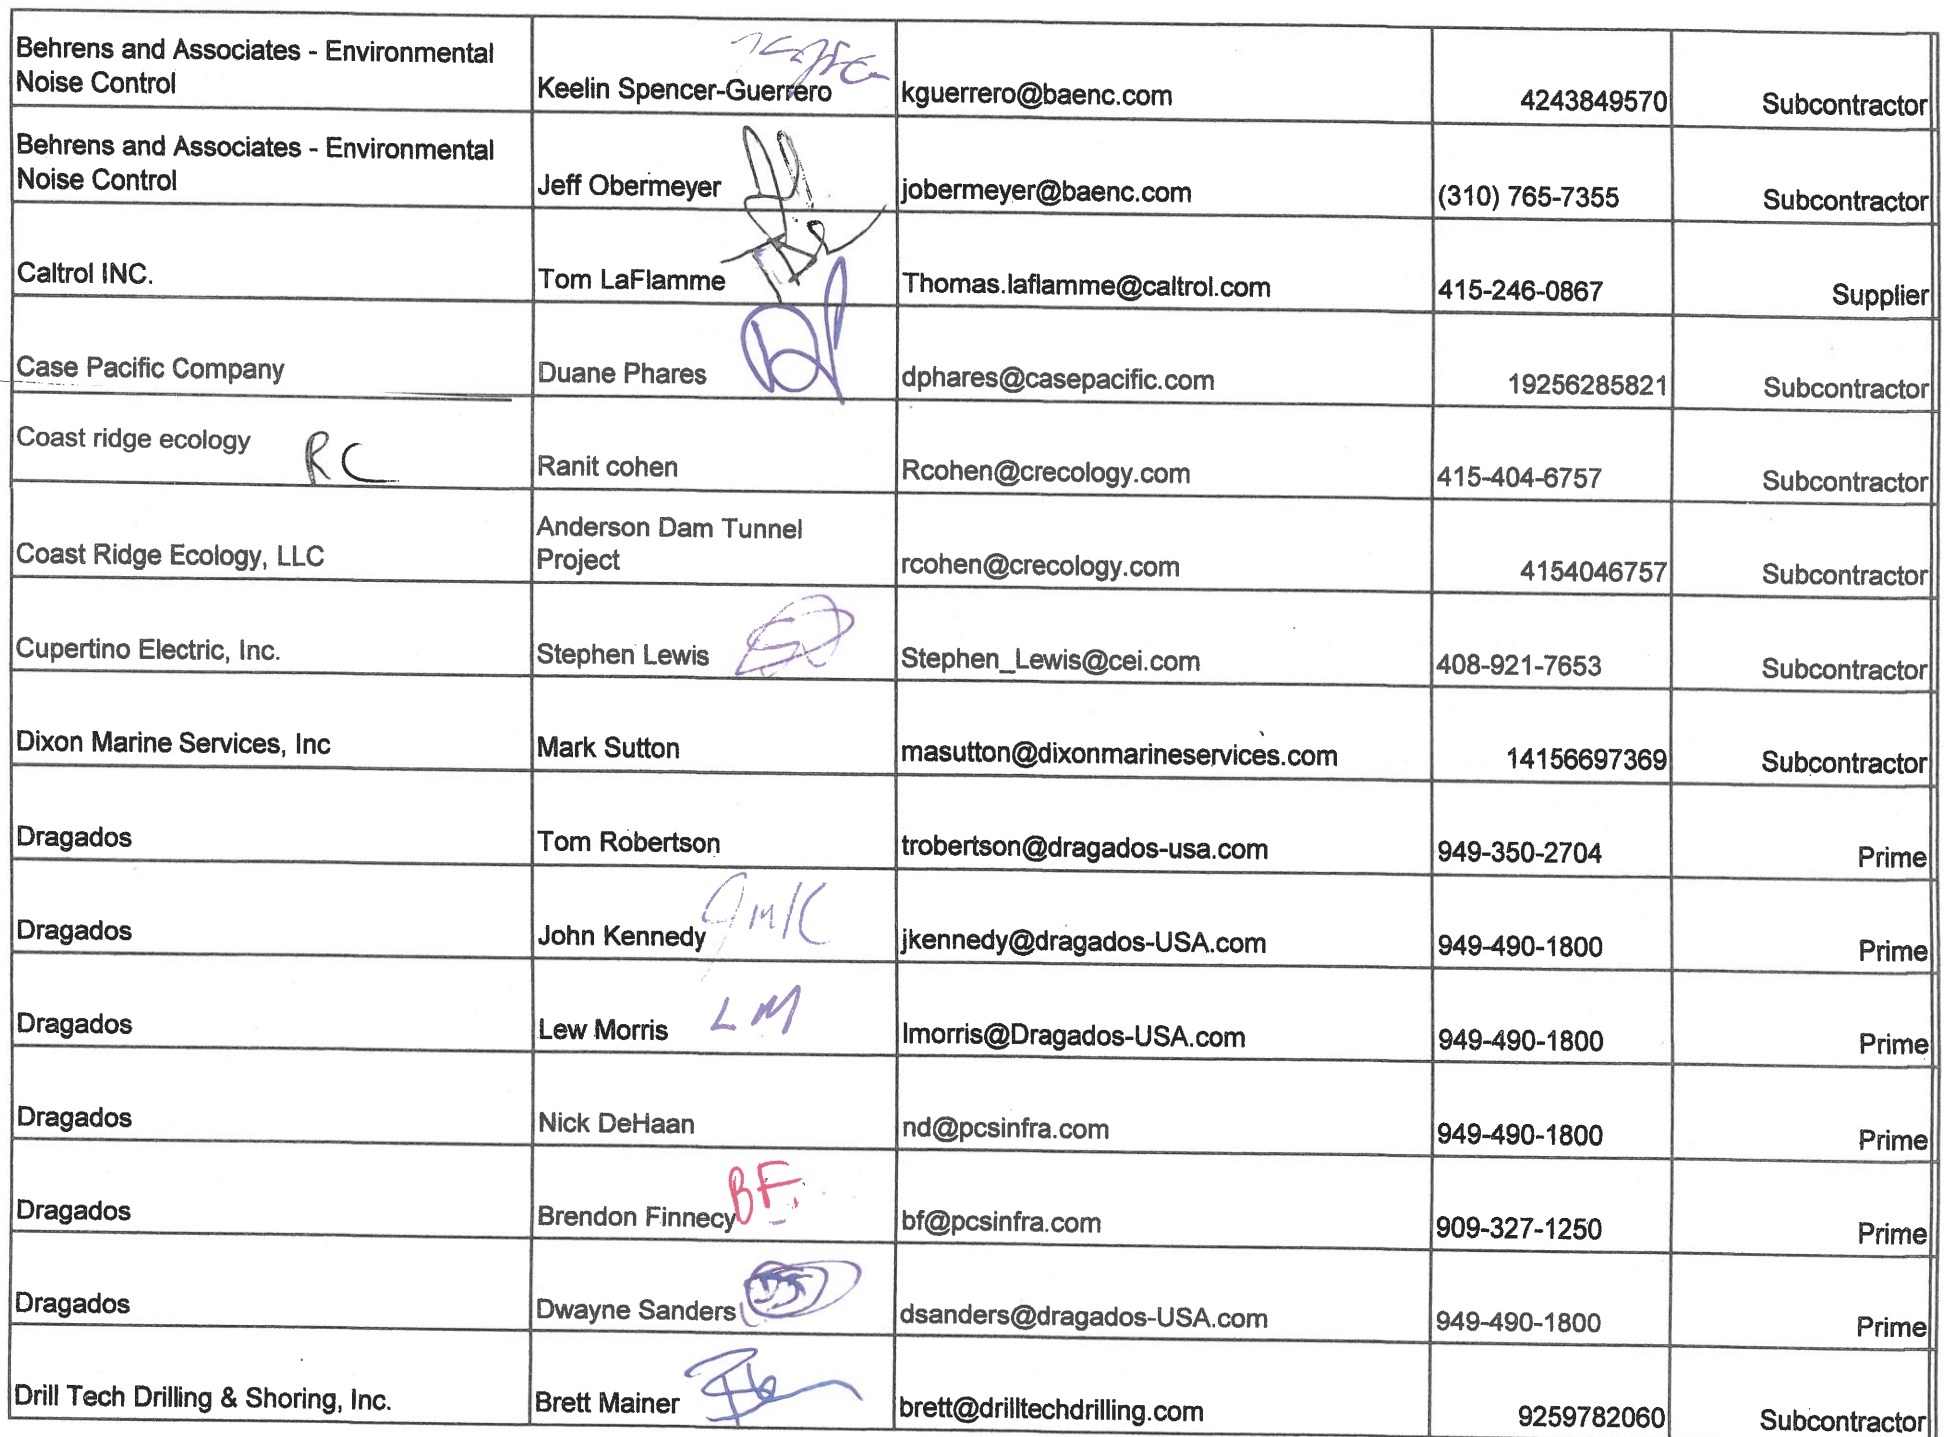 Behrens and Associates - Environmental
Noise Control
Keelin Spencer-Guerrero
kguerrero@baenc.com
4243849570
Subcontractor
Behrens and Associates - Environmental
Noise Control
Jeff Obermeyer
jobermeyer@baenc.com
(310) 765-7355
Subcontractor
Caltrol INC.
Tom LaFlamme
Thomas.laflamme@caltrol.com
415-246-0867
Supplier
Case Pacific Company
Duane Phares
dphares@casepacific.com
19256285821
Subcontractor
Coast ridge ecology
RC
Ranit cohen
Rcohen@crecology.com
415-404-6757
Subcontractor
Coast Ridge Ecology, LLC
Anderson Dam Tunnel
Project
rcohen@crecology.com
4154046757
Subcontractor
Cupertino Electric, Inc.
Stephen Lewis
Stephen_Lewis@cei.com
408-921-7653
Subcontractor
Dixon Marine Services, Inc
Mark Sutton
masutton@dixonmarineservices.com
14156697369
Subcontractor
Dragados
Tom Robertson
trobertson@dragados-usa.com
949-350-2704
Prime
Dragados
John Kennedy
JMK
jkennedy@dragados-USA.com
949-490-1800
Prime
Dragados
Lew Morris
LM
lmorris@Dragados-USA.com
949-490-1800
Prime
Dragados
Nick DeHaan
nd@pcsinfra.com
949-490-1800
Prime
Dragados
Brendon Finnecy
BF
bf@pcsinfra.com
909-327-1250
Prime
Dragados
Dwayne Sanders
dsanders@dragados-USA.com
949-490-1800
Prime
Drill Tech Drilling & Shoring, Inc.
Brett Mainer
brett@drilltechdrilling.com
9259782060
Subcontractor